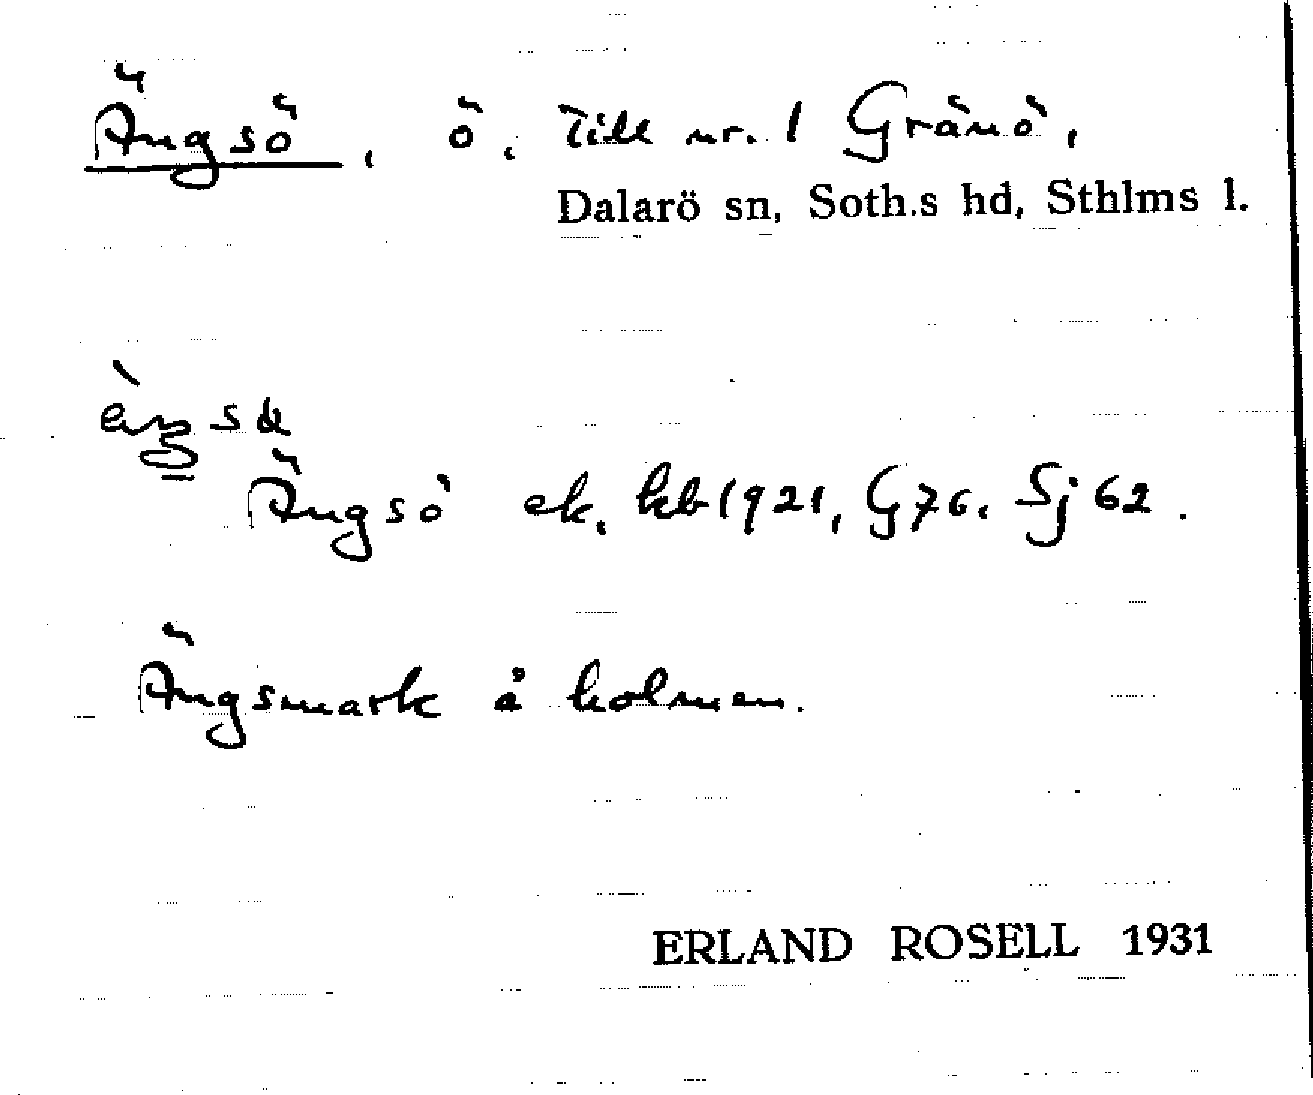 Ängsö, ö. Till nr. 1 Gränö,
Dalarö sn, Soth.s hd, Sthlms l.
Ängsö ek. kb 1921, G 76. Sj 62.
Ängsmark å holmen.
ERLAND ROSELL 1931